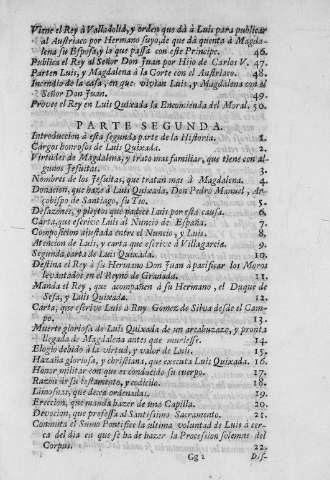 Viene el Rey à Valladolid, y orden que dà à Luis para publicar
al Austriaco por Hermano suyo, de que dà quenta à Magda-
lena su Esposa, y lo que passa con este Principe. 46.
Publica el Rey al Señor Don Juan por Hijo de Carlos V. 47.
Parten Luis, y Magdalena à la Corte con el Austriaco. 48.
Incendio de la casa, en que vivian Luis, y Magdalena con el
Señor Don Juan. 49.
Provee el Rey en Luis Quixada la Encomienda del Moral. 50.
PARTE SEGUNDA.
Introduccion à esta segunda parte de la Historia. 1.
Cargos honrosos de Luis Quixada. 2.
Virtudes de Magdalena, y trato mas familiar, que tiene con al-
gunos Jesuitas. 3.
Nombres de los Jesuitas, que tratan mas à Magdalena. 4.
Donacion, que haze à Luis Quixada, Don Pedro Manuel, Ar-
çobispo de Santiago, su Tio. 5.
Desazones, y pleytos que padece Luis por esta causa. 6.
Carta, que escrive Luis al Nuncio de España. 7.
Composicion ajustada entre el Nuncio, y Luis. 8.
Atencion de Luis, y carta que escrive à Villagarcia. 9.
Segunda carta de Luis Quixada. 10.
Destina el Rey à su Hermano Don Juan à pacificar los Moros
levantados en el Reyno de Granada. 11.
Manda el Rey, que acompañen à su Hermano, el Duque de
Sesa, y Luis Quixada. 12.
Carta, que escrive Luis à Ruy Gomez de Silva desde el Cam-
po. 13.
Muerte gloriosa de Luis Quixada de un arcabuzazo, y pronta
llegada de Magdalena antes que muriesse. 14.
Elogio debido à la virtud, y valor de Luis. 15.
Hazaña gloriosa, y christiana, que executa Luis Quixada. 16.
Honor militar con que es conducido su cuerpo. 17.
Razon de su testamento, y codicilo. 18.
Limosnas, que dexa ordenadas. 19.
Ereccion, que manda hazer de una Capilla. 20.
Devocion, que professa al Santissimo Sacramento. 21.
Conmuta el Sumo Pontifice la ultima voluntad de Luis à cer-
ca del dia en que se ha de hazer la Procession solemne del
Corpus. 22.
Gg 2 Dis-